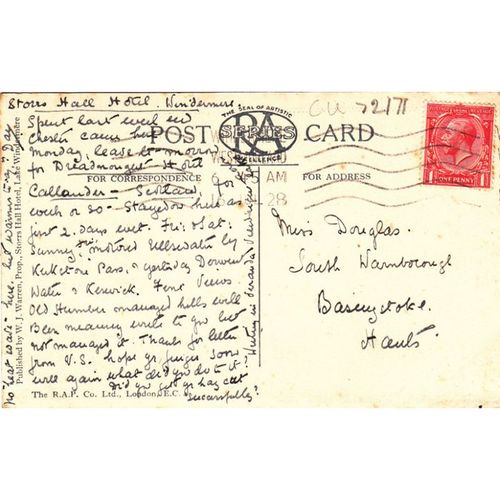 Storrs Hall Hotel. Windermere
Spent last week end
Chester came here
Monday, leave to-morrow
for Dreadnought Hotel
Callander – Scotland, for
week or so – Stayed here
just 2 days ext. Fri: & Sat:
Sunny motored Ullswater by
Kirkstone Pass, & yesterday Derwent
Water & Keswick. Fine Views.
Old Humber managed hills well
Been meaning write to you but
not managed it. Thanks for letter
from V.S. hope yr finger soon
well again what did you do to it?
Did you get yr hay cut
successfully?
no heat wave here. but warmer to-day
Published by W. J. Warren, Prop., Storrs Hall Hotel, Lake Windermere
POST CARD
THE SEAL OF ARTISTIC EXCELLENCE
RA
SERIES
FOR CORRESPONDENCE
FOR ADDRESS
AM
28
72171
ONE PENNY
Miss Douglas.
South Warnborough
Basingstoke.
Hants
The R.A.P. Co. Ltd., London, E.C.